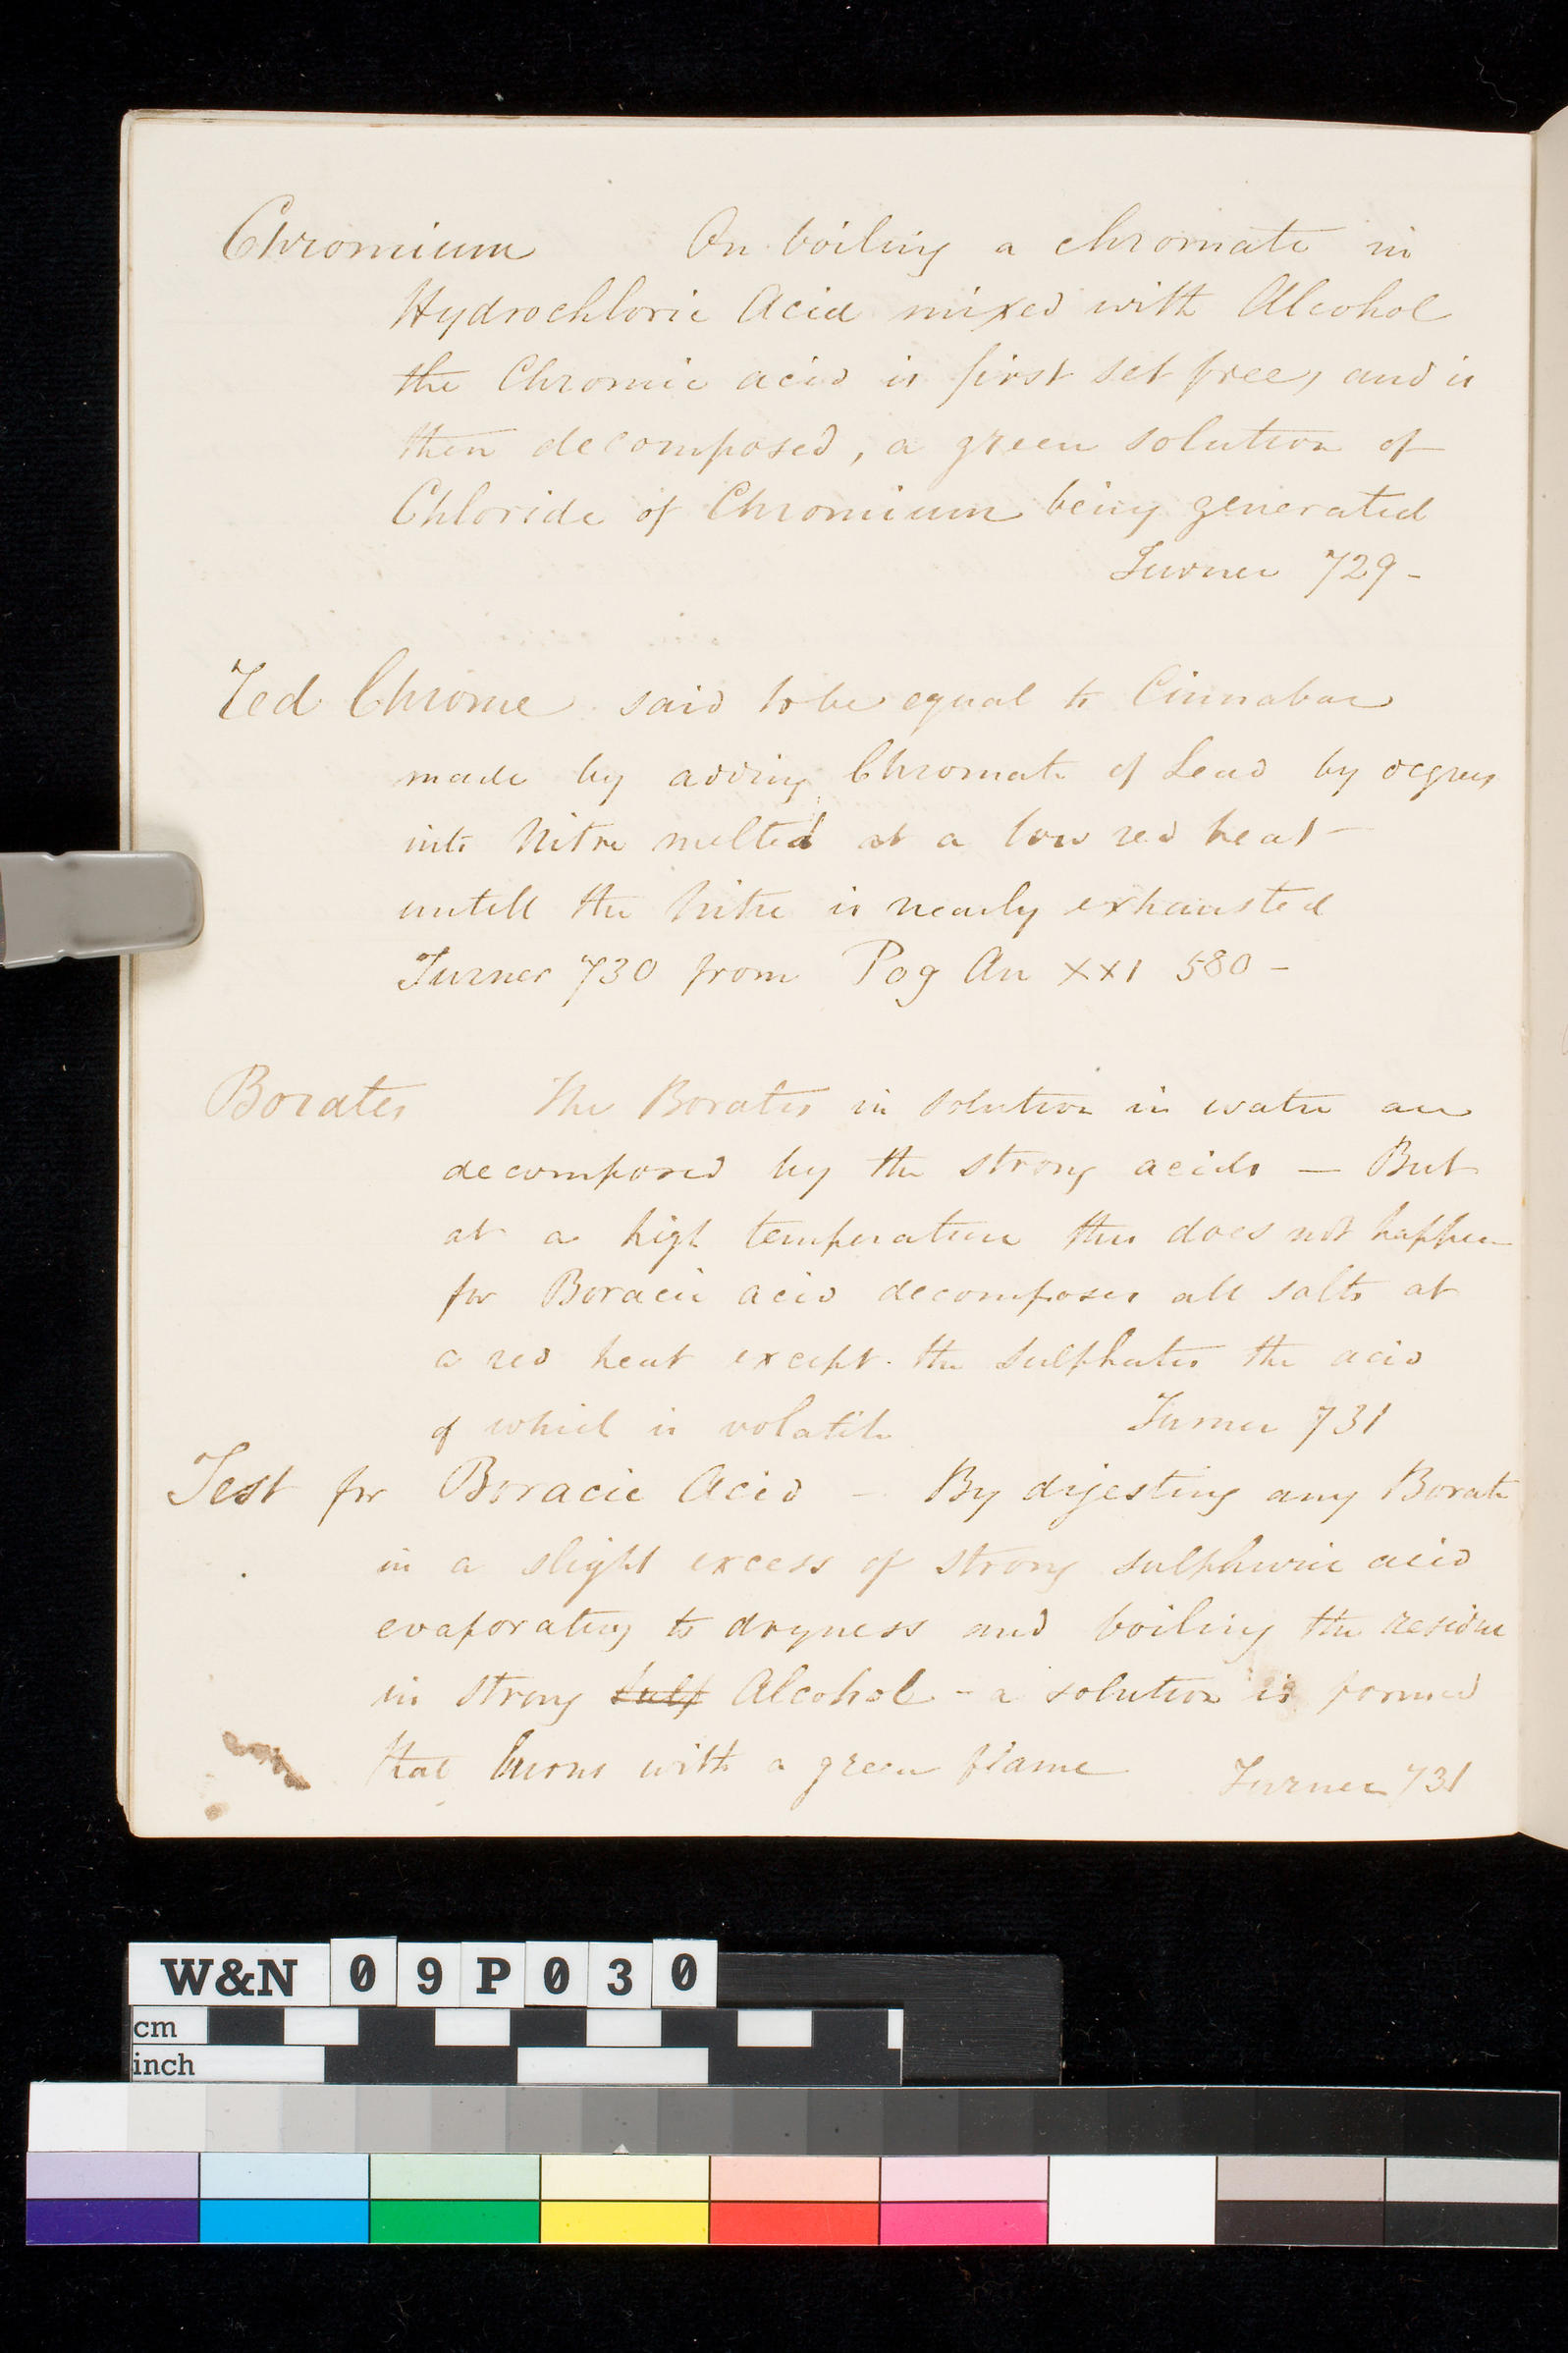 Chromium On boiling a chromate in
Hydrochloric Acid mixed with Alcohol
the Chromic acid is first set free, and is
then decomposed, a green solution of
Chloride of Chromium being generated
Turner 729 -
Red Chrome said to be equal to Cinnabar
made by adding Chromate of Lead by degrees
into Nitre melted at a low red heat
untill the Nitre is nearly exhausted
Turner 730 from Pog An XXI 580 -
Borates The Borates in solution in water are
decomposed by the strong acids — But
at a high temperature this does not happen
for Boracic acid decomposes all salts at
a red heat except the sulphates the acid
of which is volatile Turner 731
Test for Boracic Acid - By digesting any Borate
in a slight excess of strong sulphuric acid
evaporating to dryness and boiling the residue
in strong Sulp Alcohol - a solution is formed
that burns with a green flame Turner 731
W&N 09P030
cm
inch